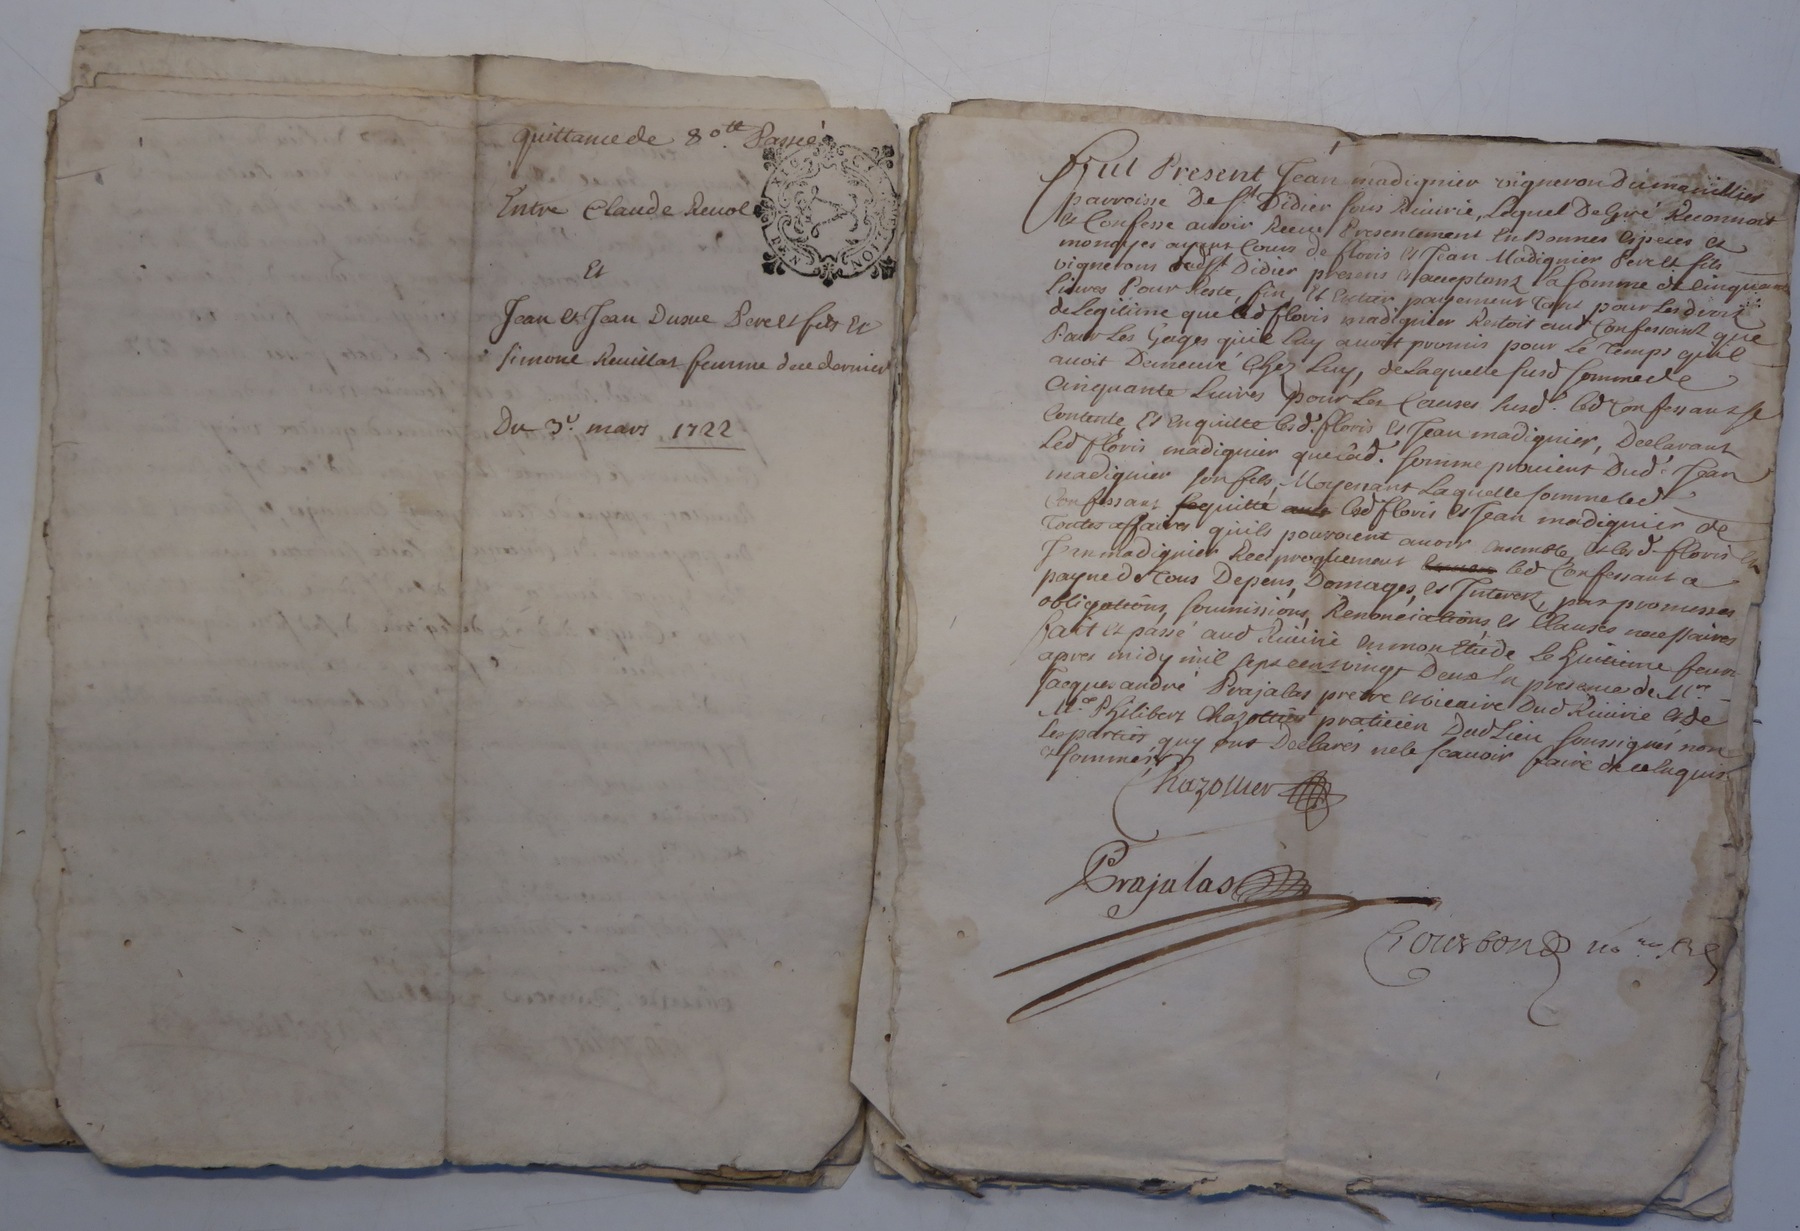 quittance de 80tt Passée
Entre Claude Reuol
Et
Jean et Jean Dusue Pere et fils Et
Simone Reuillas femme due dernier
Du 3e. mars 1722
Fut Present Jean madignier vigneron du
parroisse De St Didier sous Riuirie, Lequel De Gré Reconnoit
et Confesse auoir Receu Presentement En bonnes especes et
monoyes ayant cours de floris et Jean Madignier Pere et fils
vignerons dudt St Didier presens et acceptans la somme de cinquante
Liures Pour Reste, fin, et Entier payement tant pour les droits
de Legitime que led floris madignier Restoit aud Confessant que
Pour Les Gages quil Luy auoit promis pour Le temps quil
auoit Demeuré Chez Luy, de Laquelle susd somme de
Cinquante Liures pour Les Causes susd. led Confessant se
Contente Et en quitte lesd. floris et Jean madignier, Declarant
Led floris madignier que lad. somme prouient Dud. Jean
madignier son fils, Moyenant Laquelle somme led
Confessant se quitte auec lesd floris et Jean madignier de
Toutes affaires quils pouroient auoir ensemble, et lesd. floris et
Jean madignier Reciproquement led Confessant a
payne de tous Depens, Domages, et Interest, par promesses
obligations, soumissions, Renonciations, et Clauses necessaires
fait et passé aud Riuirie en mon Etude Le huitieme feur
apres midy mil sept cens vingt Deux En presence de Mre
Jacques andré Prajalas pretre et vicaire Dud Riuirie et de
Me. Philibert Chazottier praticien Dud Lieu soussignés non
Les parties quy ont Declarés ne le scauoir faire de ce Enquis
et sommés
Chazottier
Prajalas
Bourbon no.re R